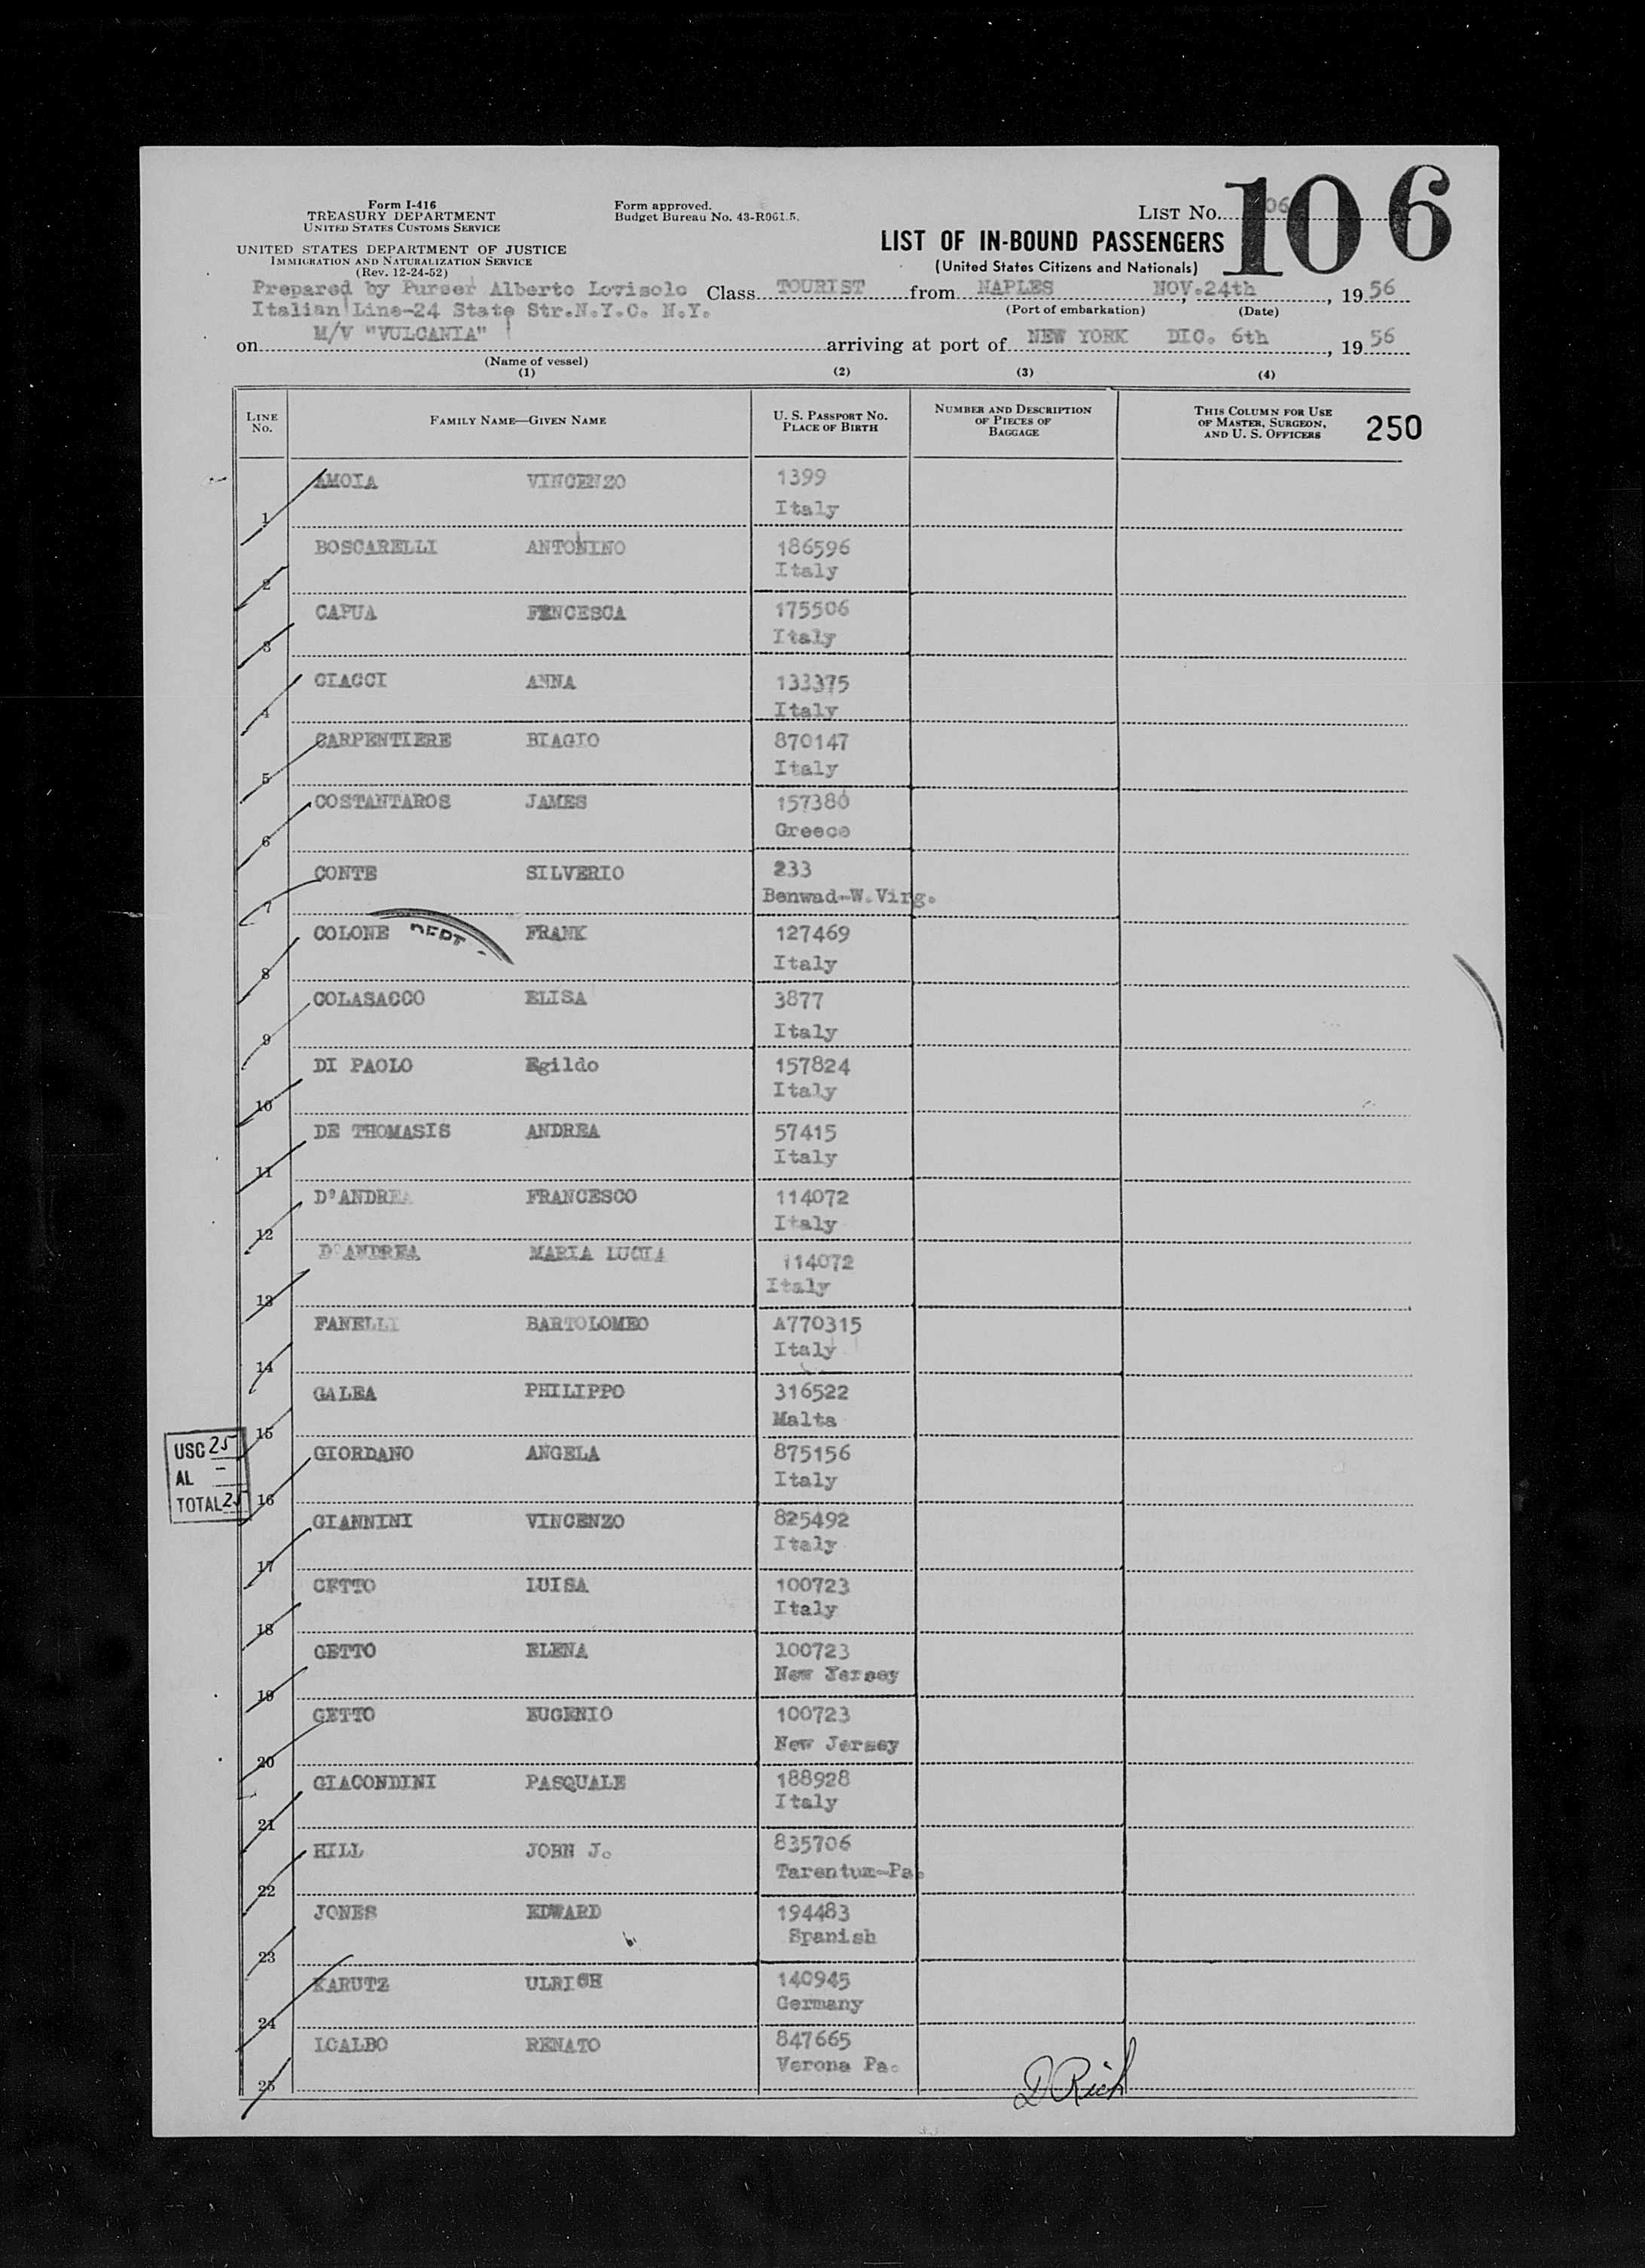 Form I-416
TREASURY DEPARTMENT
UNITED STATES CUSTOMS SERVICE
UNITED STATES DEPARTMENT OF JUSTICE
IMMIGRATION AND NATURALIZATION SERVICE
(Rev. 12-24-52)
Form approved.
Budget Bureau No. 43-R061.5.
LIST No. 106
LIST OF IN-BOUND PASSENGERS
(United States Citizens and Nationals)
Prepared by Purser Alberto Lovisolo Class TOURIST from NAPLES NOV.24th, 1956
Italian Line-24 State Str.N.Y.C. N.Y. (Port of embarkation) (Date)
on M/V "VULCANIA" arriving at port of NEW YORK DIC. 6th, 1956
(Name of vessel)
(1) (2) (3) (4)
LINE No. FAMILY NAME—GIVEN NAME U. S. PASSPORT No. PLACE OF BIRTH NUMBER AND DESCRIPTION OF PIECES OF BAGGAGE THIS COLUMN FOR USE OF MASTER, SURGEON, AND U. S. OFFICERS 250
AMOIA VINCENZO 1399
1 Italy
BOSCARELLI ANTONINO 186596
2 Italy
CAPUA FENCESCA 175506
3 Italy
CIACCI ANNA 133375
4 Italy
CARPENTIERE BIAGIO 870147
5 Italy
COSTANTAROS JAMES 157380
6 Greece
CONTE SILVERIO 233
7 Benwad-W.Virg.
COLONE DEPT FRANK 127469
8 Italy
COLASACCO ELISA 3877
9 Italy
DI PAOLO Egildo 157824
10 Italy
DE THOMASIS ANDREA 57415
11 Italy
D'ANDREA FRANCESCO 114072
12 Italy
D'ANDREA MARIA LUCIA 114072
13 Italy
FANELLI BARTOLOMEO A770315
14 Italy
GALEA PHILIPPO 316522
15 Malta
GIORDANO ANGELA 875156
16 Italy
USC 25
AL -
TOTAL 25
GIANNINI VINCENZO 825492
17 Italy
GETTO LUISA 100723
18 Italy
GETTO ELENA 100723
19 New Yersey
GETTO EUGENIO 100723
20 New Jersey
GIACONDINI PASQUALE 188928
21 Italy
HILL JOHN J. 835706
22 Tarentum-Pa.
JONES EDWARD 194483
23 Spanish
KARUTZ ULRICH 140945
24 Germany
LCALBO RENATO 847665
25 Verona Pa.
D Rich